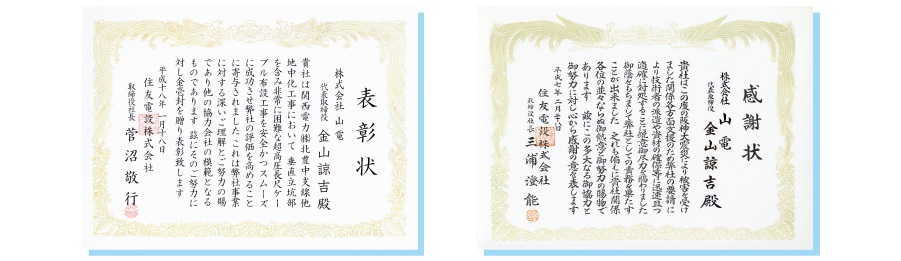 表彰状
株式会社 山電
代表取締役 金山諒吉殿
貴社は関西電力㈱北豊中支線他
地中化工事において 垂直立坑部
を含み非常に困難な超高圧長尺ケー
ブル布設工事を安全かつスムーズ
に成功させ弊社の評価を高めること
に寄与されました これは弊社事業
に対する深いご理解とご努力の賜
であり他の協力会社の模範となる
ものであります 茲にそのご努力に
対し金壱封を贈り表彰致します
平成十八年 一月十八日
住友電設株式会社
取締役社長 菅沼敬行
感謝状
株式会社 山電
代表取締役 金山諒吉殿
貴社はこの度の阪神大震災により被害を受け
ました関係各方面支援のため弊社の要請に
より技術者の派遣や資材の確保等に迅速且つ
適確に対処することに格意御尽力を賜わりました
御陰をもちまして弊社としての責務を果たす
ことが出来ました これも偏えに貴社関係
各位の並々ならぬ御熱意と御努力の賜物で
あります 茲にこの多大なる御協力と
御努力に対し心から感謝の意を表します
平成七年 二月二十八日
住友電設株式会社
取締役社長 三浦澄能